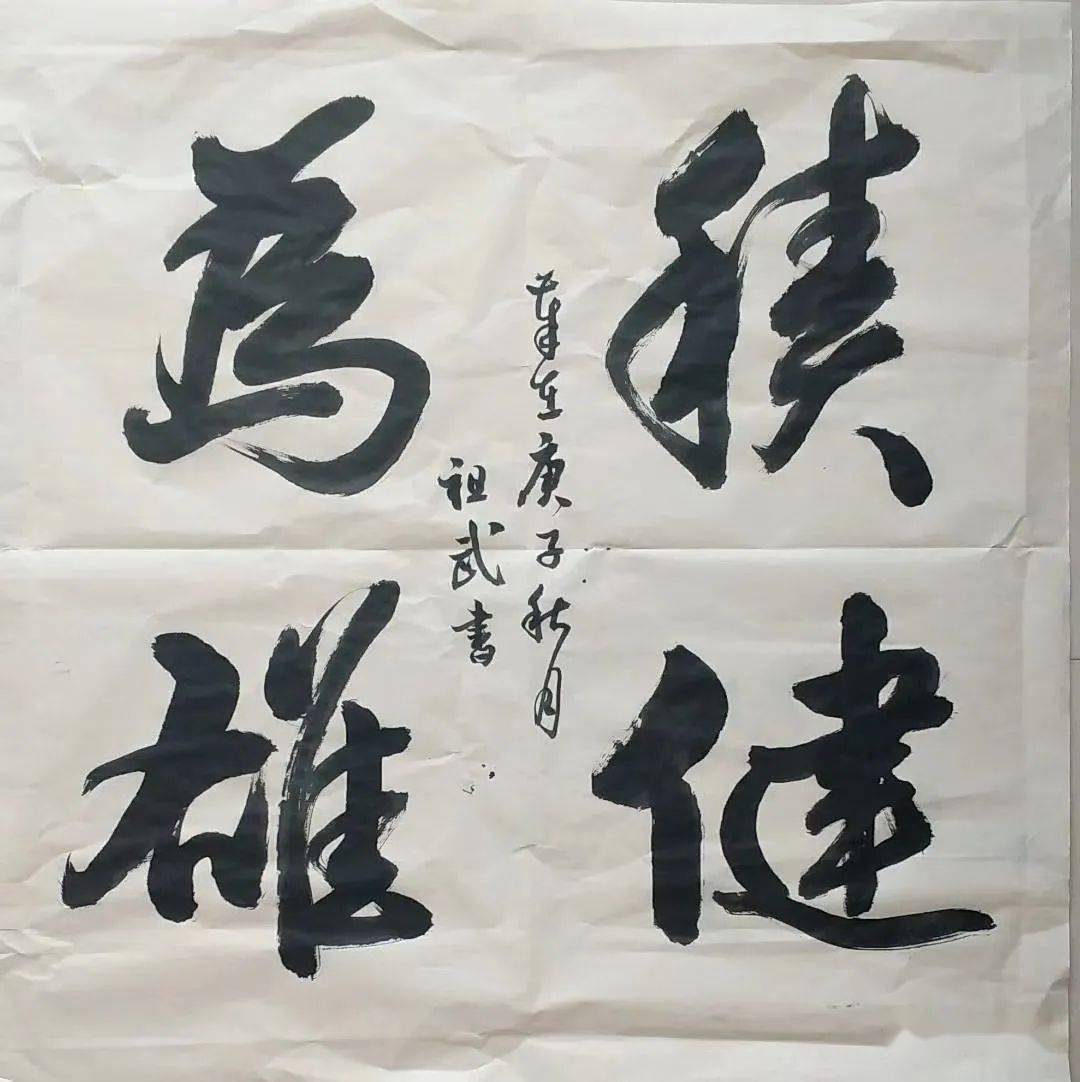 積健
為雄
歲在庚子秋月
祖武書